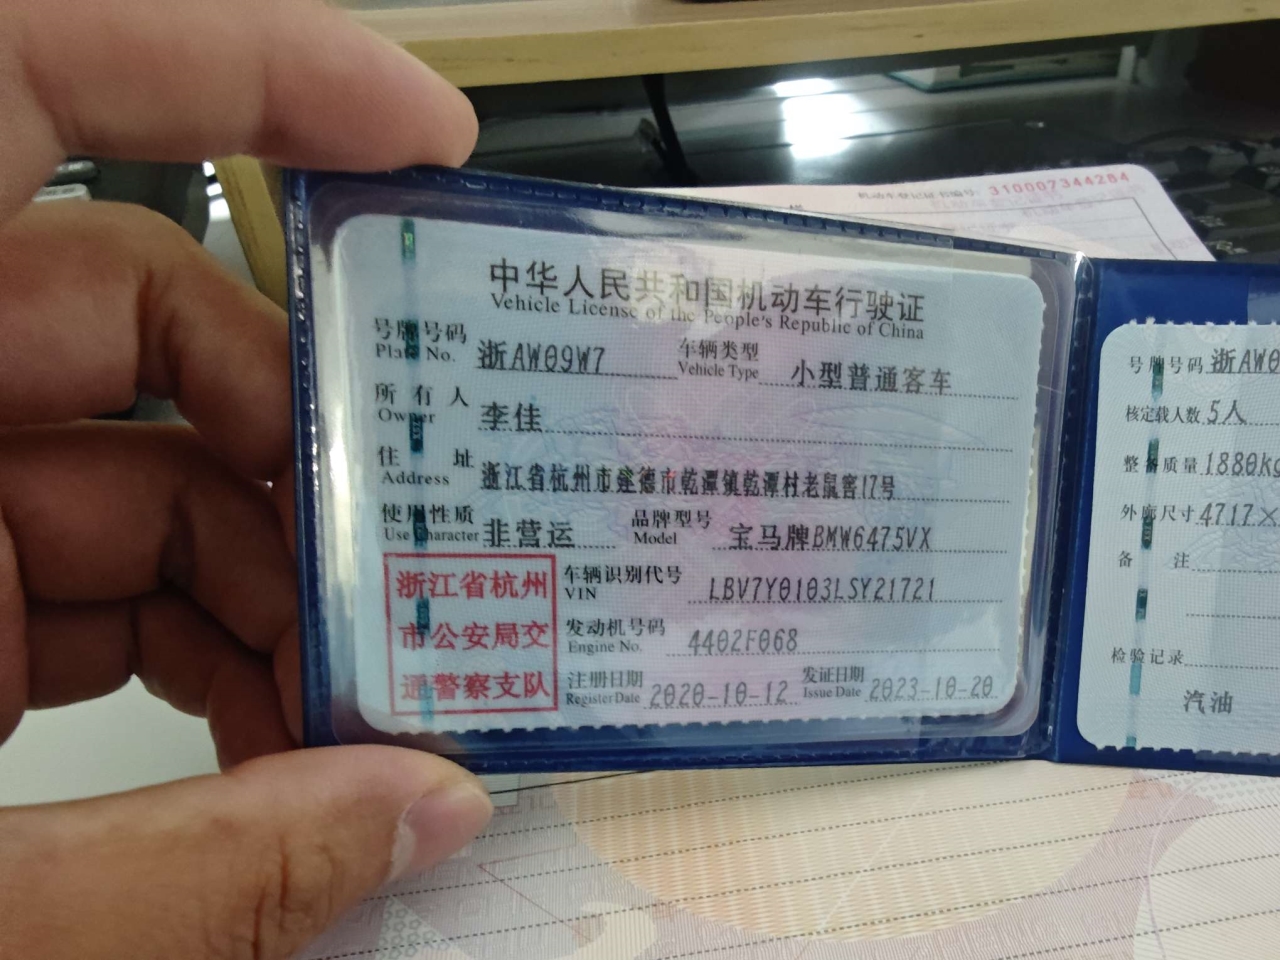 机动车登记证书编号: 310007344284
中华人民共和国机动车行驶证
Vehicle License of the People's Republic of China
号牌号码 浙AW09W7 车辆类型 小型普通客车
Plate No. Vehicle Type
所有人 李佳
Owner
住址 浙江省杭州市建德市乾潭镇乾潭村老鼠窖17号
Address
使用性质 非营运 品牌型号 宝马牌BMW6475VX
Use Character Model
浙江省杭州
市公安局交
通警察支队
车辆识别代号 LBV7Y0103LSY21721
VIN
发动机号码 4402F068
Engine No.
注册日期 2020-10-12 发证日期 2023-10-20
Register Date Issue Date
号牌号码 浙AW0
核定载人数 5人
整备质量 1880kg
外廓尺寸 4717×
备注
检验记录
汽油